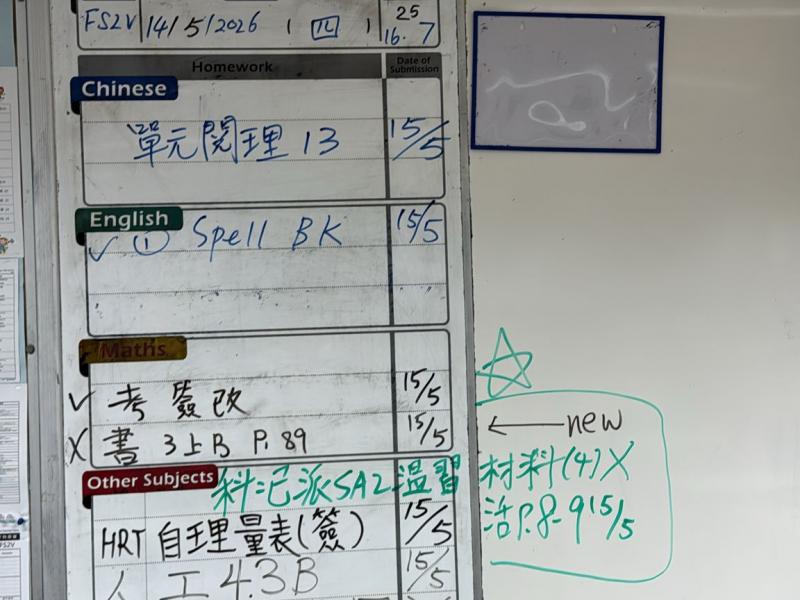 FS2V 14/5/2026 ( 四 ) 25
16.7
Homework Date of Submission
Chinese
單元閱理 13 15/5
English
✓ ① Spell BK 15/5
Maths
✓ 考 簽改 15/5
X 書 3上B P.89 15/5
Other Subjects
科:已派SA2溫習
HRT 自理量表(簽) 15/5
人工 4.3B 15/5
← new
材料(4)X
活P.8-9 15/5